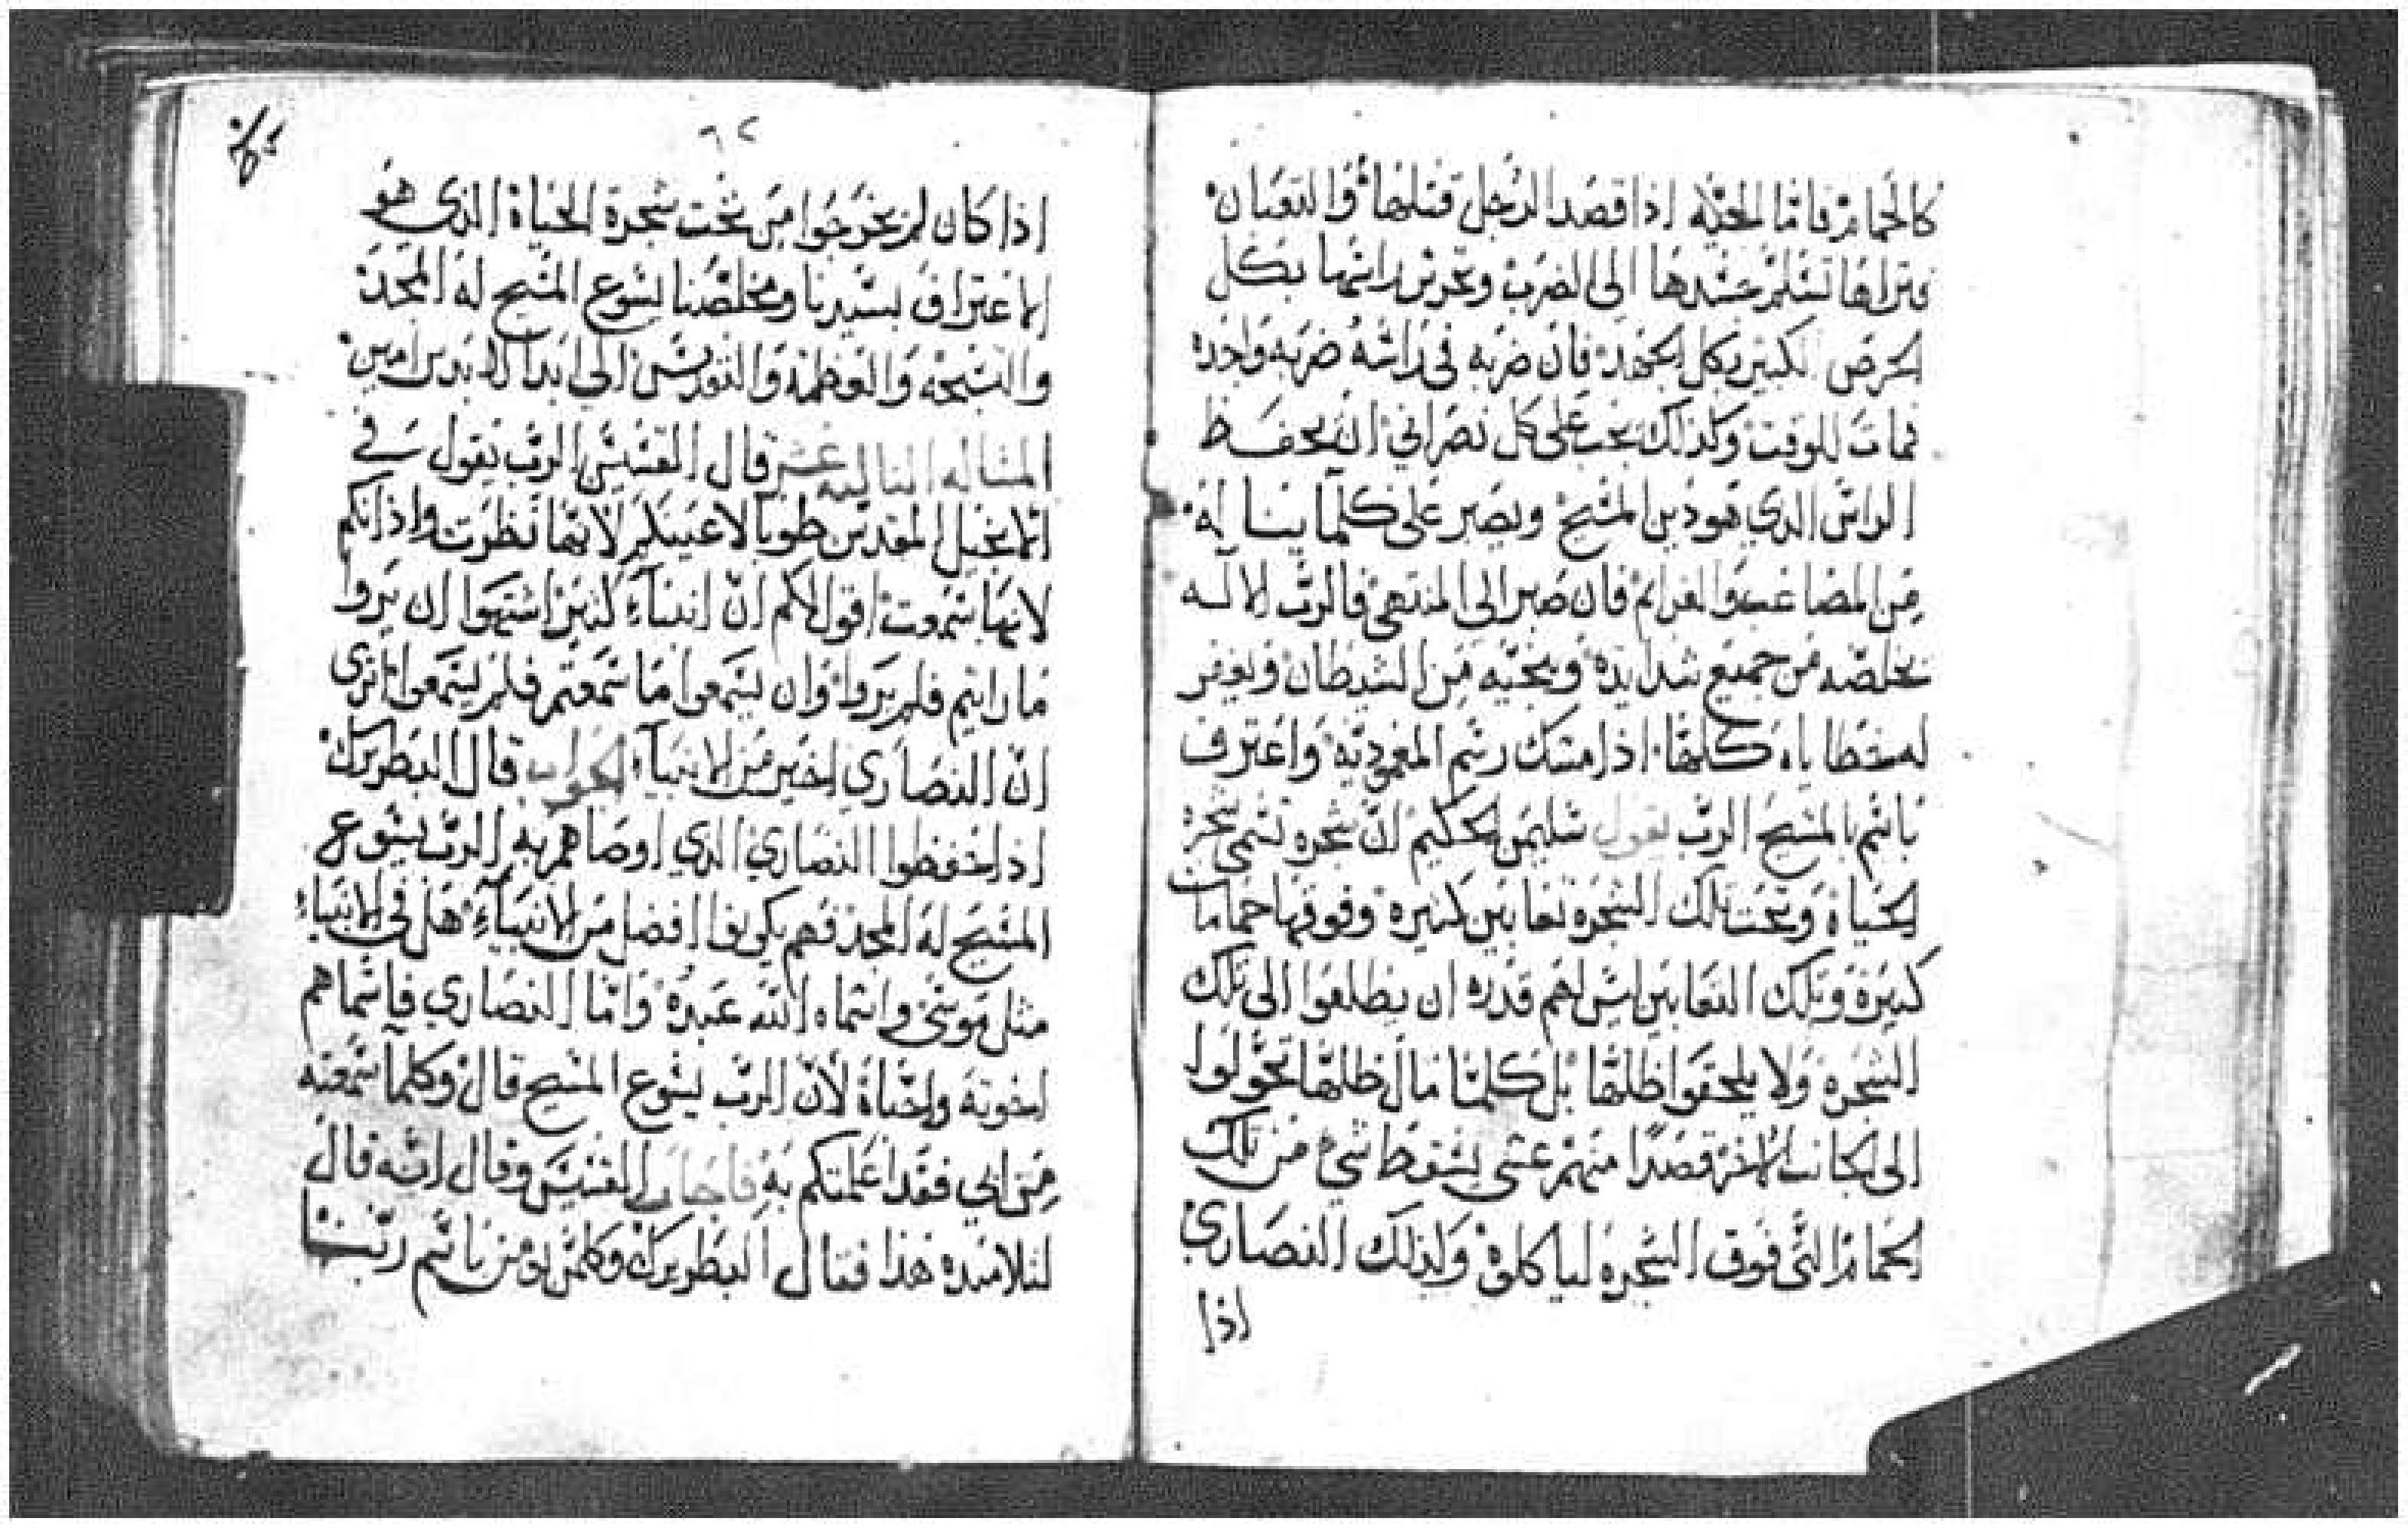 كالحمام فاما الحيه اذا قصد الرجل قتلها والتعبان
فتراها تسلم جسدها الى الضرب وتحرس راسها بكل
الحرص الكبير بكل الجهد فان ضربه في راسه ضربه واحده
فمات للوقت وكذلك يجب على كل نصراني ان يحفظ
الراس الدي هو دين المسيح ويصبر على كلما يناله
من المصاعب والغرايم فان صبر الى المنتهى فالرب الاله
يخلصه من جميع شدايده وينجيه من الشيطان ويغفر
له خطاياه كلها اذا مسك رسم المعموديه واعترف
باسم المسيح الرب يقول سليمن الحكيم ان شجره تسمى شجرة
الحياه وتحت تلك الشجره تعابين كتيره وفوقها حمامات
كتيرة وتلك التعابين اس لهم قدره ان يطلعوا الى تلك
الشجره ولا يلحقوا ظلها بل كلما مال ظلها تحولوا
الى الجانب الاخر قصدا منهم عسى يسقط شي من تلك
الحمام التي فوق الشجره لياكلوه ولذلك النصاري
اذا
٦٢
اذا كان لم يخرجوا من تحت شجرة الحياة الذي هو
الاعتراف بسيدنا ومخلصنا يسوع المسيح له المجد
والتسبحه والعظمة والتقديس الى ابد الابدين امين
المساله التالته عشر قال القسيس الرب يقول في
الانجيل المقدس طوبا لاعينكم لانها نظرت واذانكم
لانها سمعت اقول لكم ان انبياء كتير اشتهوا ان يروا
ما رايتم فلم يروا وان يسمعوا ما سمعتم فلم يسمعوا اترى
ان النصاري اخير من الانبياء الجواب قال البطريرك
اذا حفظوا النصاري الدي اوصاهم به الرب يسوع
المسيح له المجد فهم يكونوا افضل من الانبياء هل في الانبياء
مثل موسى واسماه الله عبده واما النصاري فاسماهم
اخوته واحباه لان الرب يسوع المسيح قال وكلما سمعته
من ابي فقد اعلمتكم به فاجاب القسيس وقال انه قال
لتلاميده هذا فقال البطريرك وكلمن يومن باسم ربنا